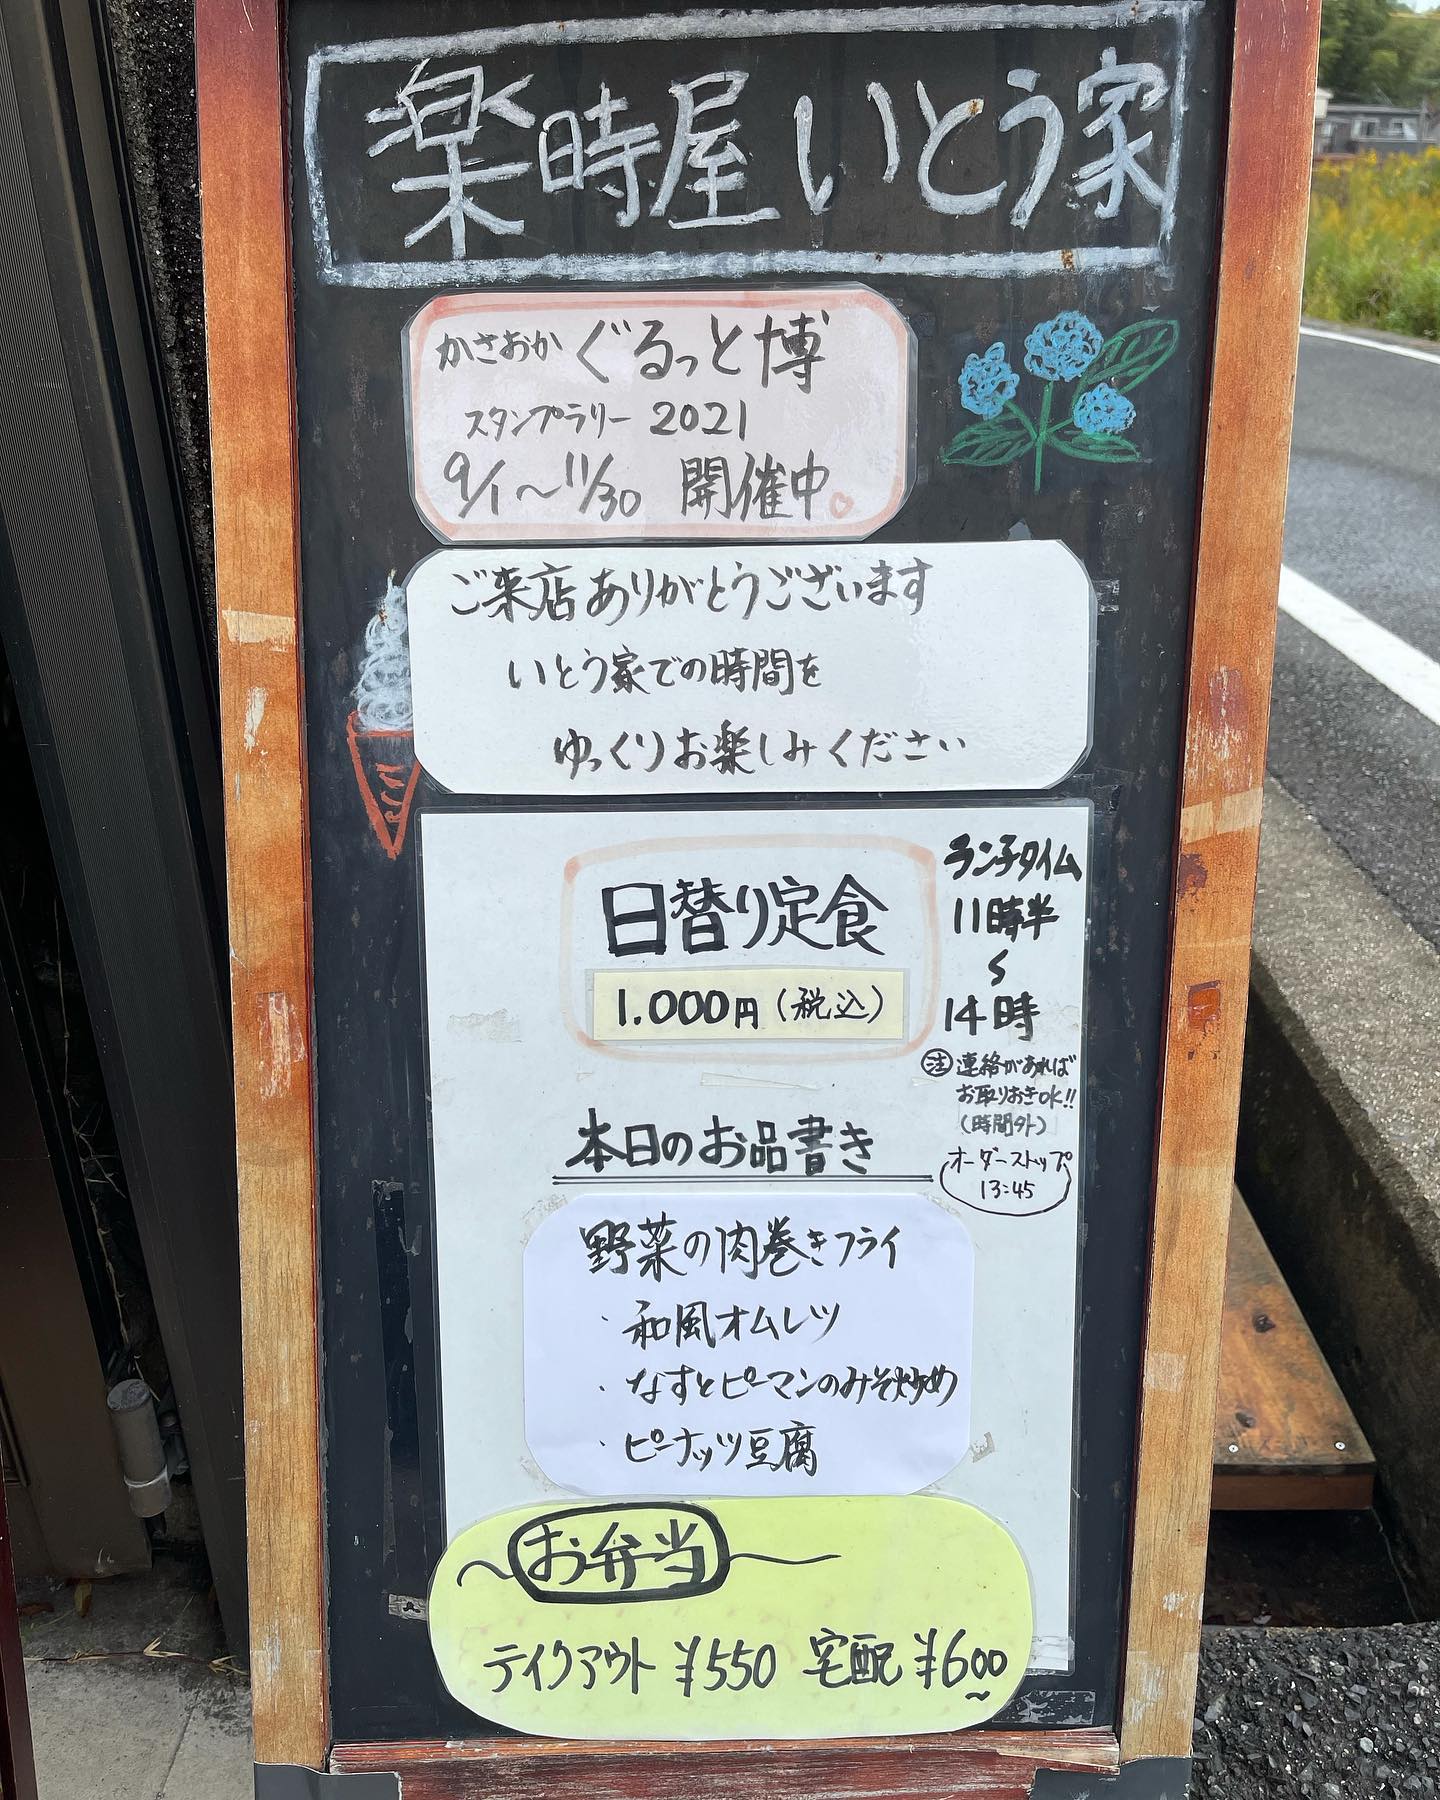 楽時屋 いとう家
かさおか ぐるっと博
スタンプラリー 2021
9/1〜11/30 開催中。
ご来店ありがとうございます
いとう家での時間を
ゆっくりお楽しみください
日替り定食
1.000円(税込)
ランチタイム
11時半
〜
14時
注 連絡があれば
お取りおきOK!!
(時間外)
オーダーストップ
13:45
本日のお品書き
野菜の肉巻きフライ
・和風オムレツ
・なすとピーマンのみそ炒め
・ピーナッツ豆腐
〜お弁当〜
テイクアウト ¥550 宅配 ¥600〜